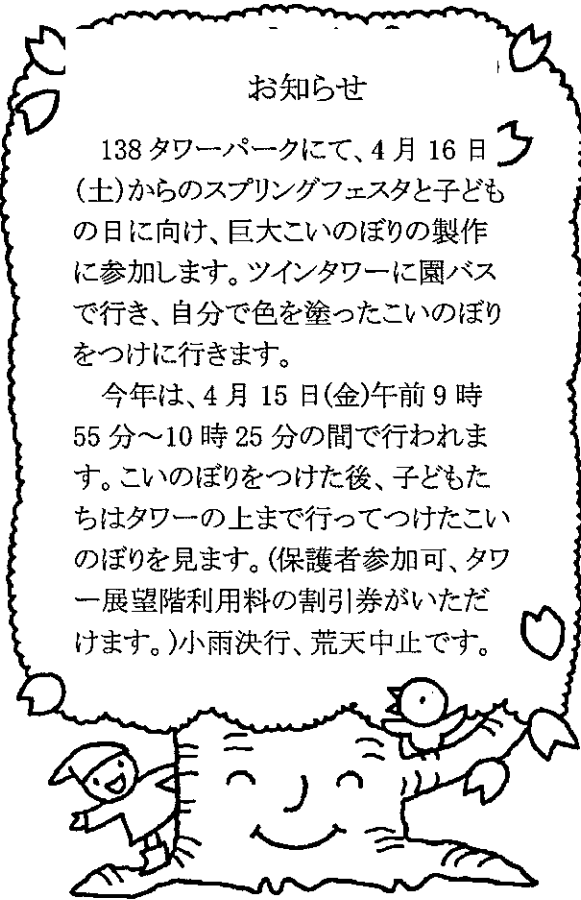 お知らせ
138タワーパークにて、4月16日
(土)からのスプリングフェスタと子ども
の日に向け、巨大こいのぼりの製作
に参加します。ツインタワーに園バス
で行き、自分で色を塗ったこいのぼり
をつけに行きます。
今年は、4月15日(金)午前9時
55分～10時25分の間で行われま
す。こいのぼりをつけた後、子どもた
ちはタワーの上まで行ってつけたこい
のぼりを見ます。(保護者参加可、タワ
ー展望階利用料の割引券がいただ
けます。)小雨決行、荒天中止です。